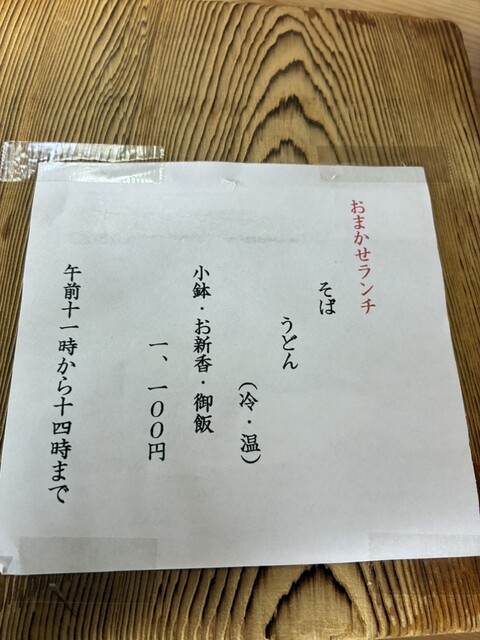 おまかせランチ
そば
うどん
(冷・温)
小鉢・お新香・御飯
一、一〇〇円
午前十一時から十四時まで